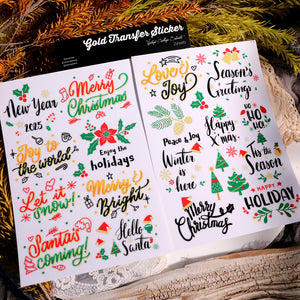 Gold Transfer Sticker
New Year
2025
Merry
Christmas
Joy to
the world
Enjoy the
holidays
Let it
snow!
Merry
Bright
Santa's
coming!
Hello
Santa
Love &
Joy
Season's
Greetings
Peace & Joy
Happy
X'mas
HO
HO
HO
Winter
is
here
'Tis the
Season
Merry
Christmas
HAPPY
HOLIDAY